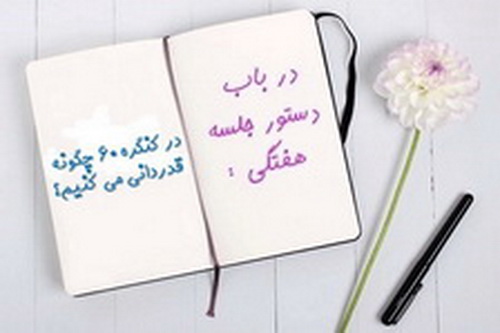 در باب
دستور جلسه
هفتگی :
در کنگره ۶۰ چگونه
قدردانی می کنیم؟